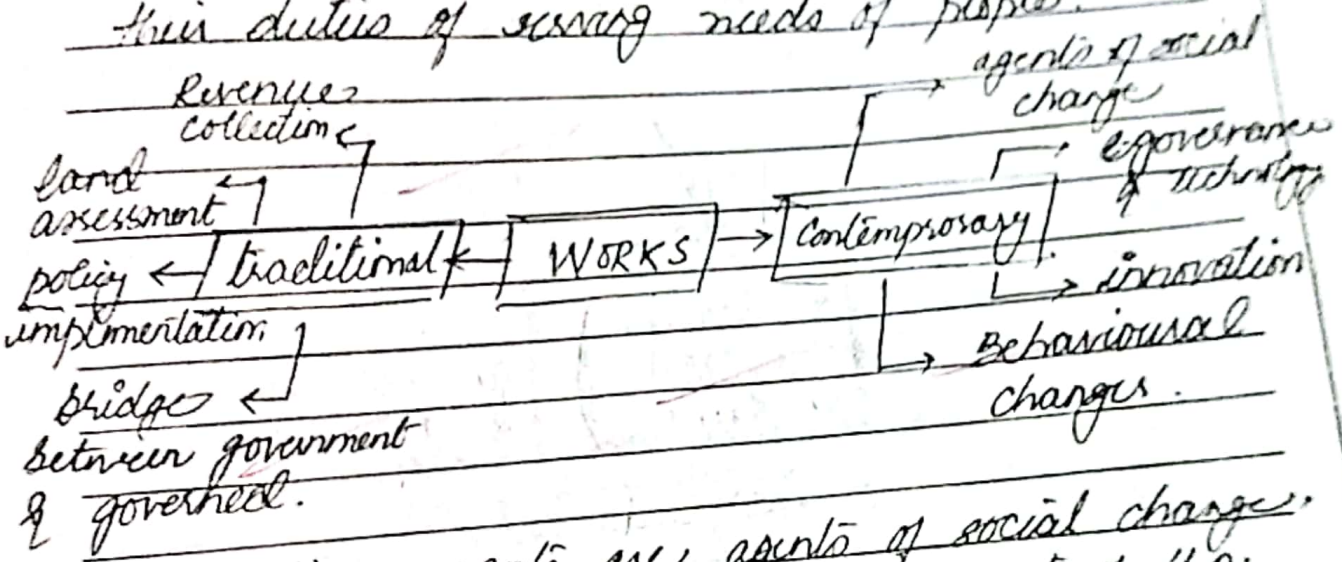 their duties of serving needs of people.
Revenue
collection
land
assessment
policy
implimentation
bridge
between government
& governed.
traditional
WORKS
Contemprosary
agents of social
change
e-governance
& technology
innovation
Behavioural
changes.
agents of social change.